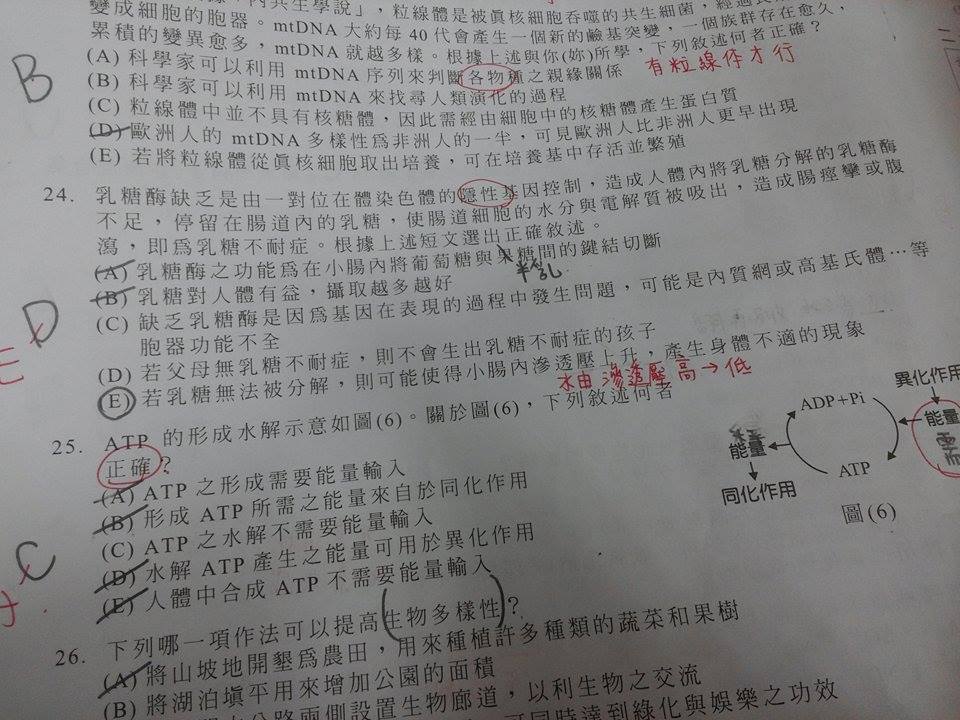 內共生學說」，粒線體是被真核細胞吞噬的共生細菌，經過
變成細胞的胞器。mtDNA 大約每 40 代會產生一個新的鹼基突變，一個族群存在愈久，
累積的變異愈多，mtDNA 就越多樣。根據上述與你(妳)所學，下列敘述何者正確？
B
(A) 科學家可以利用 mtDNA 序列來判斷各物種之親緣關係 有粒線体才行
(B) 科學家可以利用 mtDNA 來找尋人類演化的過程
(C) 粒線體中並不具有核糖體，因此需經由細胞中的核糖體產生蛋白質
(D) 歐洲人的 mtDNA 多樣性為非洲人的一半，可見歐洲人比非洲人更早出現
(E) 若將粒線體從真核細胞取出培養，可在培養基中存活並繁殖
24. 乳糖酶缺乏是由一對位在體染色體的隱性基因控制，造成人體內將乳糖分解的乳糖酶
不足，停留在腸道內的乳糖，使腸道細胞的水分與電解質被吸出，造成腸痙攣或腹
瀉，即為乳糖不耐症。根據上述短文選出正確敘述。
(A) 乳糖酶之功能為在小腸內將葡萄糖與果糖間的鍵結切斷
半乳
D
E
(B) 乳糖對人體有益，攝取越多越好
(C) 缺乏乳糖酶是因為基因在表現的過程中發生問題，可能是內質網或高基氏體…等
胞器功能不全
(D) 若父母無乳糖不耐症，則不會生出乳糖不耐症的孩子
(E) 若乳糖無法被分解，則可能使得小腸內滲透壓上升，產生身體不適的現象
水由滲透壓高→低
25. ATP 的形成水解示意如圖(6)。關於圖(6)，下列敘述何者
正確？
C
(A) ATP 之形成需要能量輸入
(B) 形成 ATP 所需之能量來自於同化作用
(C) ATP 之水解不需要能量輸入
(D) 水解 ATP 產生之能量可用於異化作用
(E) 人體中合成 ATP 不需要能量輸入
異化作用
ADP+Pi
能量
能量
ATP
同化作用
圖(6)
26. 下列哪一項作法可以提高生物多樣性？
(A) 將山坡地開墾為農田，用來種植許多種類的蔬菜和果樹
(B) 將湖泊填平用來增加公園的面積
公路兩側設置生物廊道，以利生物之交流
可同時達到綠化與娛樂之功效